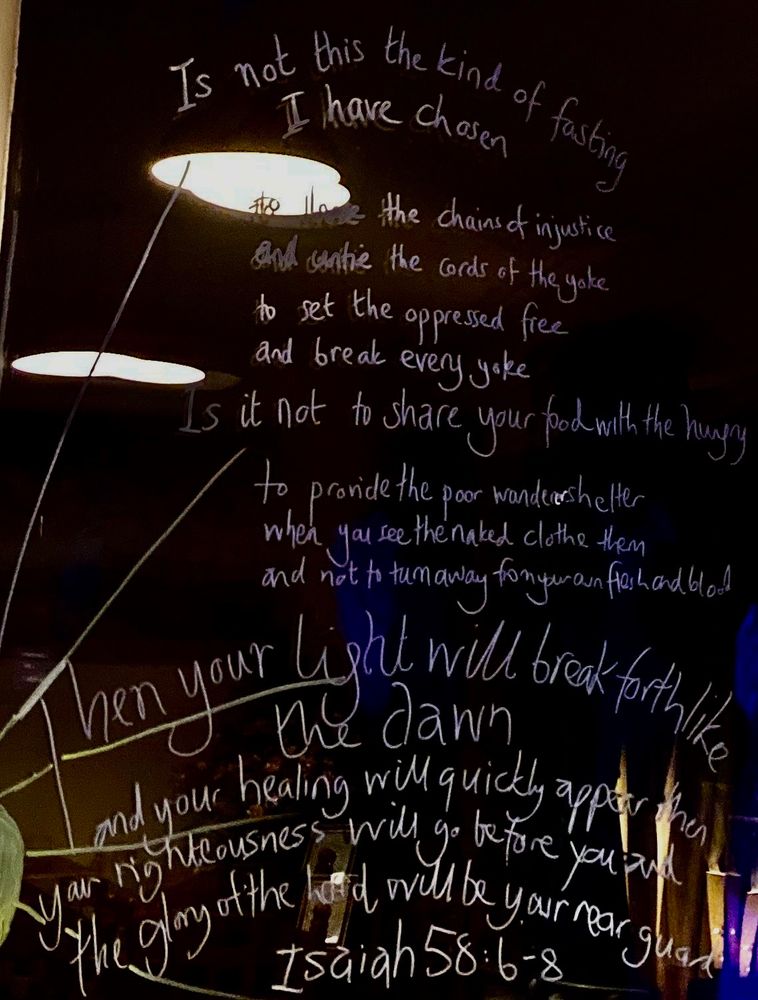 Is not this the kind of fasting
I have chosen
to loose the chains of injustice
and untie the cords of the yoke
to set the oppressed free
and break every yoke
Is it not to share your food with the hungry
to provide the poor wanderer shelter
when you see the naked clothe them
and not to turn away from your own flesh and blood
Then your light will break forth like
the dawn
and your healing will quickly appear then
your righteousness will go before you and
the glory of the Lord will be your rear guard
Isaiah 58:6-8